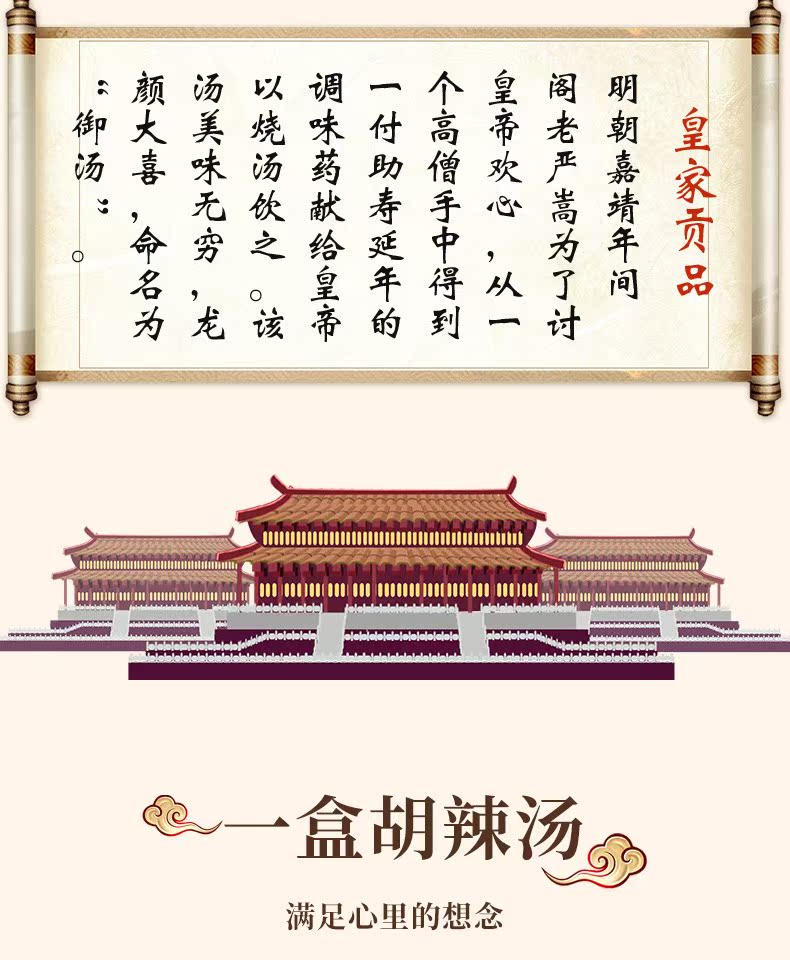 皇家贡品
明朝嘉靖年间
阁老严嵩为了讨
皇帝欢心，从一
个高僧手中得到
一付助寿延年的
调味药献给皇帝
以烧汤饮之。该
汤美味无穷，龙
颜大喜，命名为
“御汤”。
一盒胡辣汤
满足心里的想念